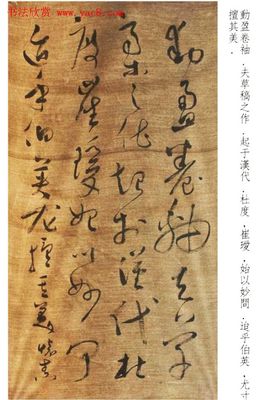 书法欣赏
www.yac8.com
動盈卷軸夫草
稿之作起於漢代杜
度崔瑗始以妙聞
迨乎伯英尤擅其美懷素
動盈卷袖．夫草稿之作．起于漢代．杜度．崔瑷．始以妙聞．迨乎伯英．尤寸
擅其美．